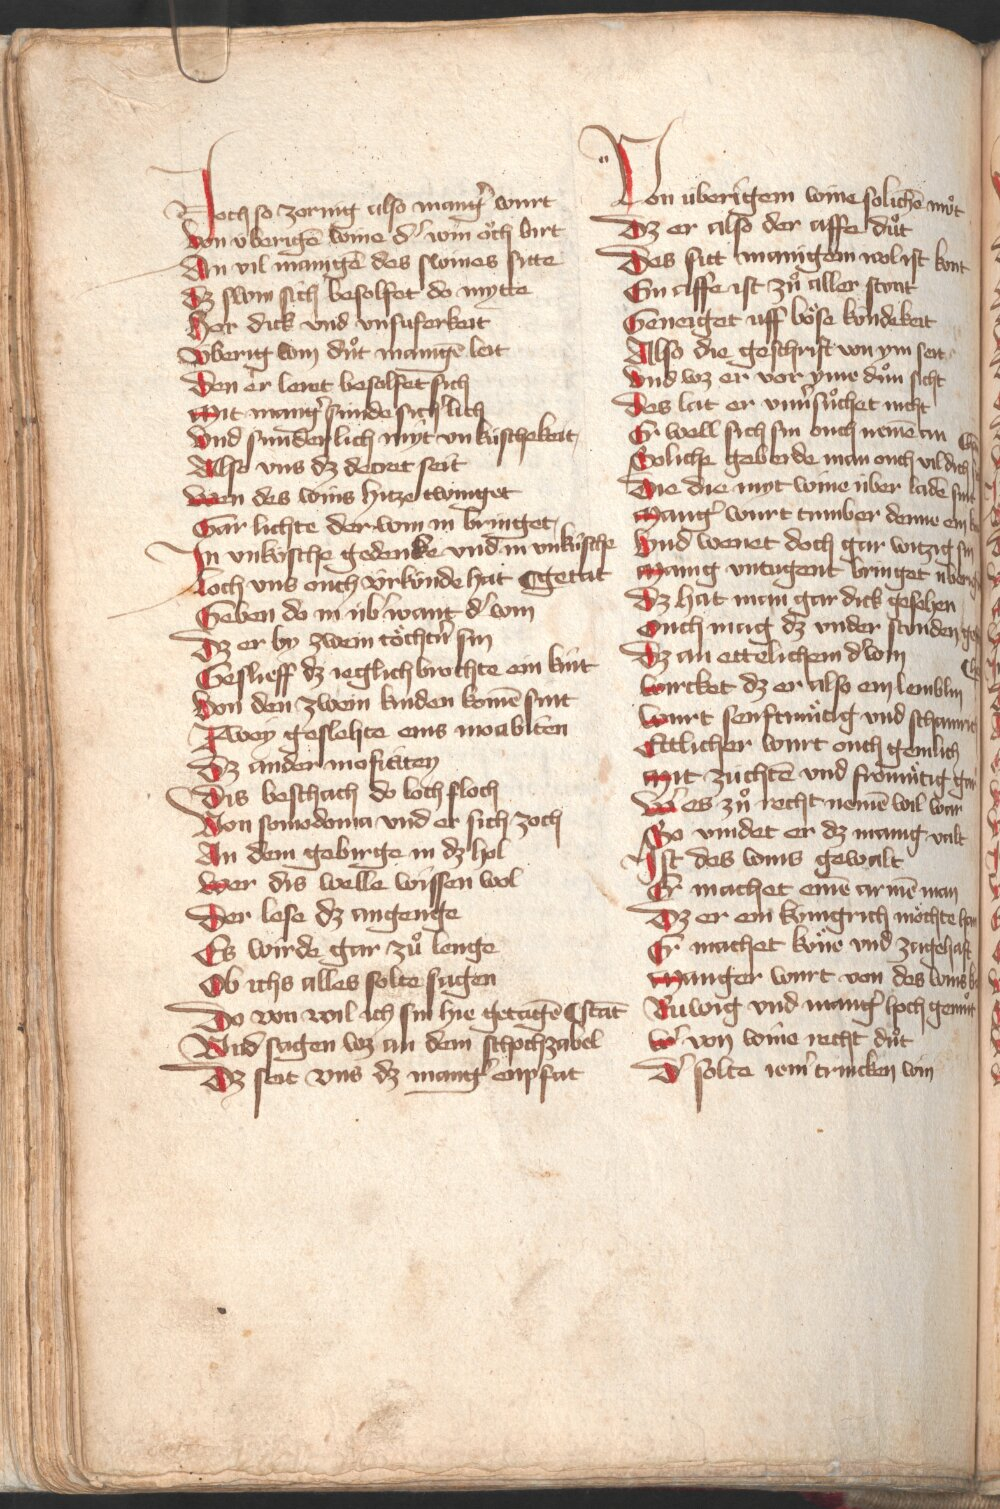 Joch so zornig also mang̃ wurt
Von v̈berigē wine d' win o̊ch birt
An vil manigē des swines sitte
Dz swin sich besolfet do mytte
Hor dick vnd vnsuferkeit
Vberig win du̇t manigē leit
Den er leret besolfet sich
Mit mang̃ sünde sich'lich
Vnd sunderlich mÿt vnküschekeit
Also vns dz decret seit
Wen des wins hitze twinget
Gar lichte der win in bringet
In vnküsche gedenke vnd in vnküsche
Loch vns ouch v̈rkünde hat ¶ getat
Geben do in üb' want d' win
Dz er by zwein töchtn̄ sin
Geslieff dz ieglich brochte ein kint
Von den zwein kinden komē sint
Zwey geslehte eins moabiten
Dz ander mofiten
Dis beschach do loch floch
Von somodoma vnd er sich zoch
An dem gebirge in dz hol
Wer dis welle wissen wol
Der lese dz angenge
Es wirde gar zů lenge
Ob ichs alles solte sagen
Do von wil ich sin hie getagē ¶ stat
Vnd sagen wz an dem schochzabel
Dz seit vns dz mang' enpfat
Von überigem wine solichē můt
Dz er also der affe důt
Des sitt manigem wol ist kont
Ein affe ist zů aller stunt
Geneiget uff böse kündekeit
Also die geschrift von ym seit
Vnd wz er vor yme důn sicht
Des lat er vnv'sůchet nicht
Er well sich sin ouch nemē an
Soliche geberde man ouch vil dich
Die die myt wine über ladē sint
Mang' wurt tumber denne ein
Vnd wenet doch gar witzig sin
Manig vntugent bringet
Dz hat man gar dick gesehen
Ouch mag dz vnder stunden
Dz an ettelichem d' win
Würcket dz er also ein lemblin
Wurt senftmůtig vnd
Ettlicher wurt ouch gemlich
Mit züchtē vnd fromůtig
W' es zů recht nemē wil war
So vindet er dz manig valt
Ist des wins gewalt
Er machet einē armē man
Dz er ein küngrich möchte
Er machet köne vnd zagehaft
Manger wurt von des wins
Ruwig vnd mang' hoch gemůt
W' von wine recht důt
D' solte iem' trincken win